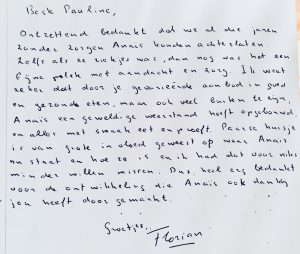 Beste Pauline,
Ontzettend bedankt dat we al die jaren
zonder zorgen Anais konden achterlaten.
Zelfs als ze ziekjes was, dan nog was het een
fijne plek met aandacht en zorg. Ik weet
zeker dat door je gevarieerde aanbod in goed
en gezonde eten, maar ook veel buiten te zijn,
Anais een geweldige weerstand heeft opgebouwd
en alles met smaak eet en proeft. Paarse huisje
is van grote invloed geweest op waar Anais
nu staat en hoe ze is en ik had dat voor niks
minder willen missen. Dus, heel erg bedankt
voor de ontwikkeling die Anais ook dankzij
jou heeft door gemaakt.
Groetjes,
Florian